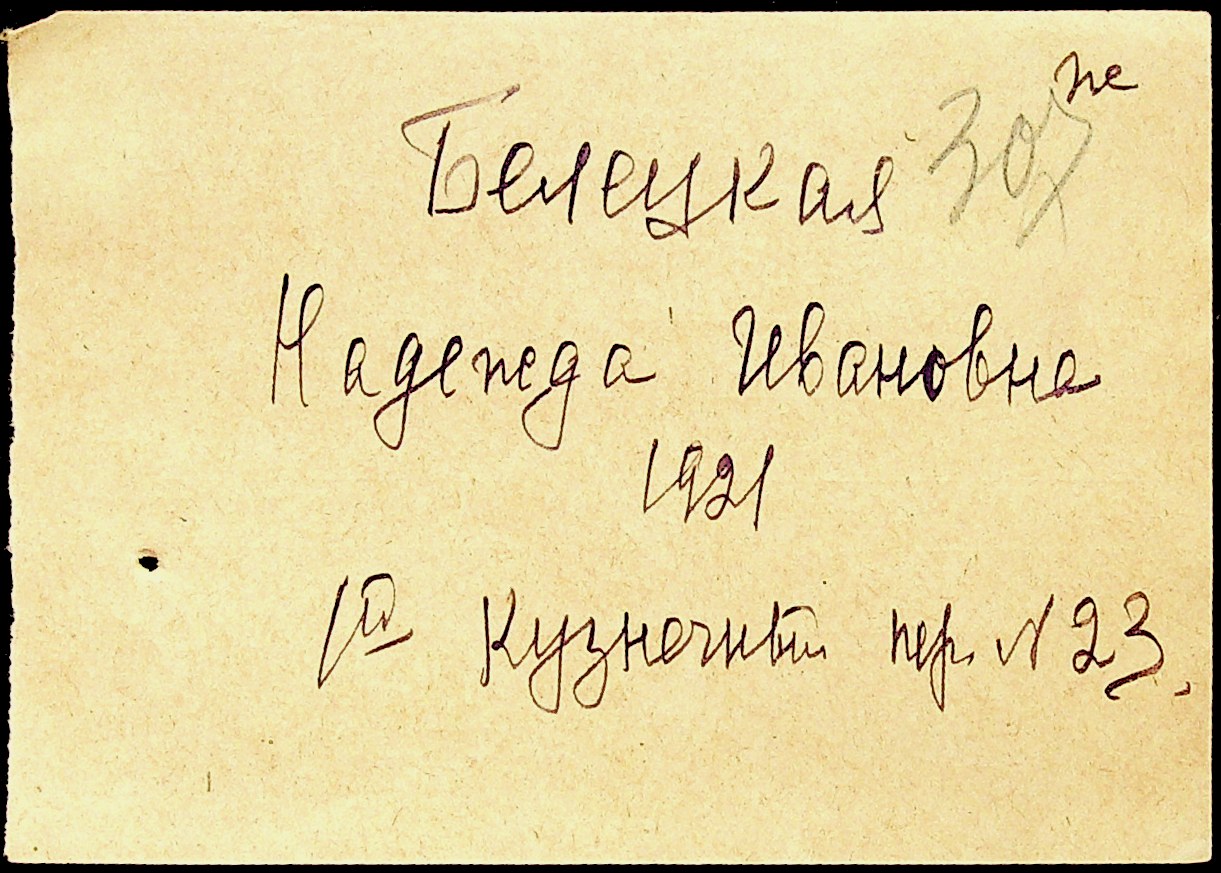 пе
Белецкая 307
Надежда Ивановна
1921
1й Кузнечный пер. N 23.